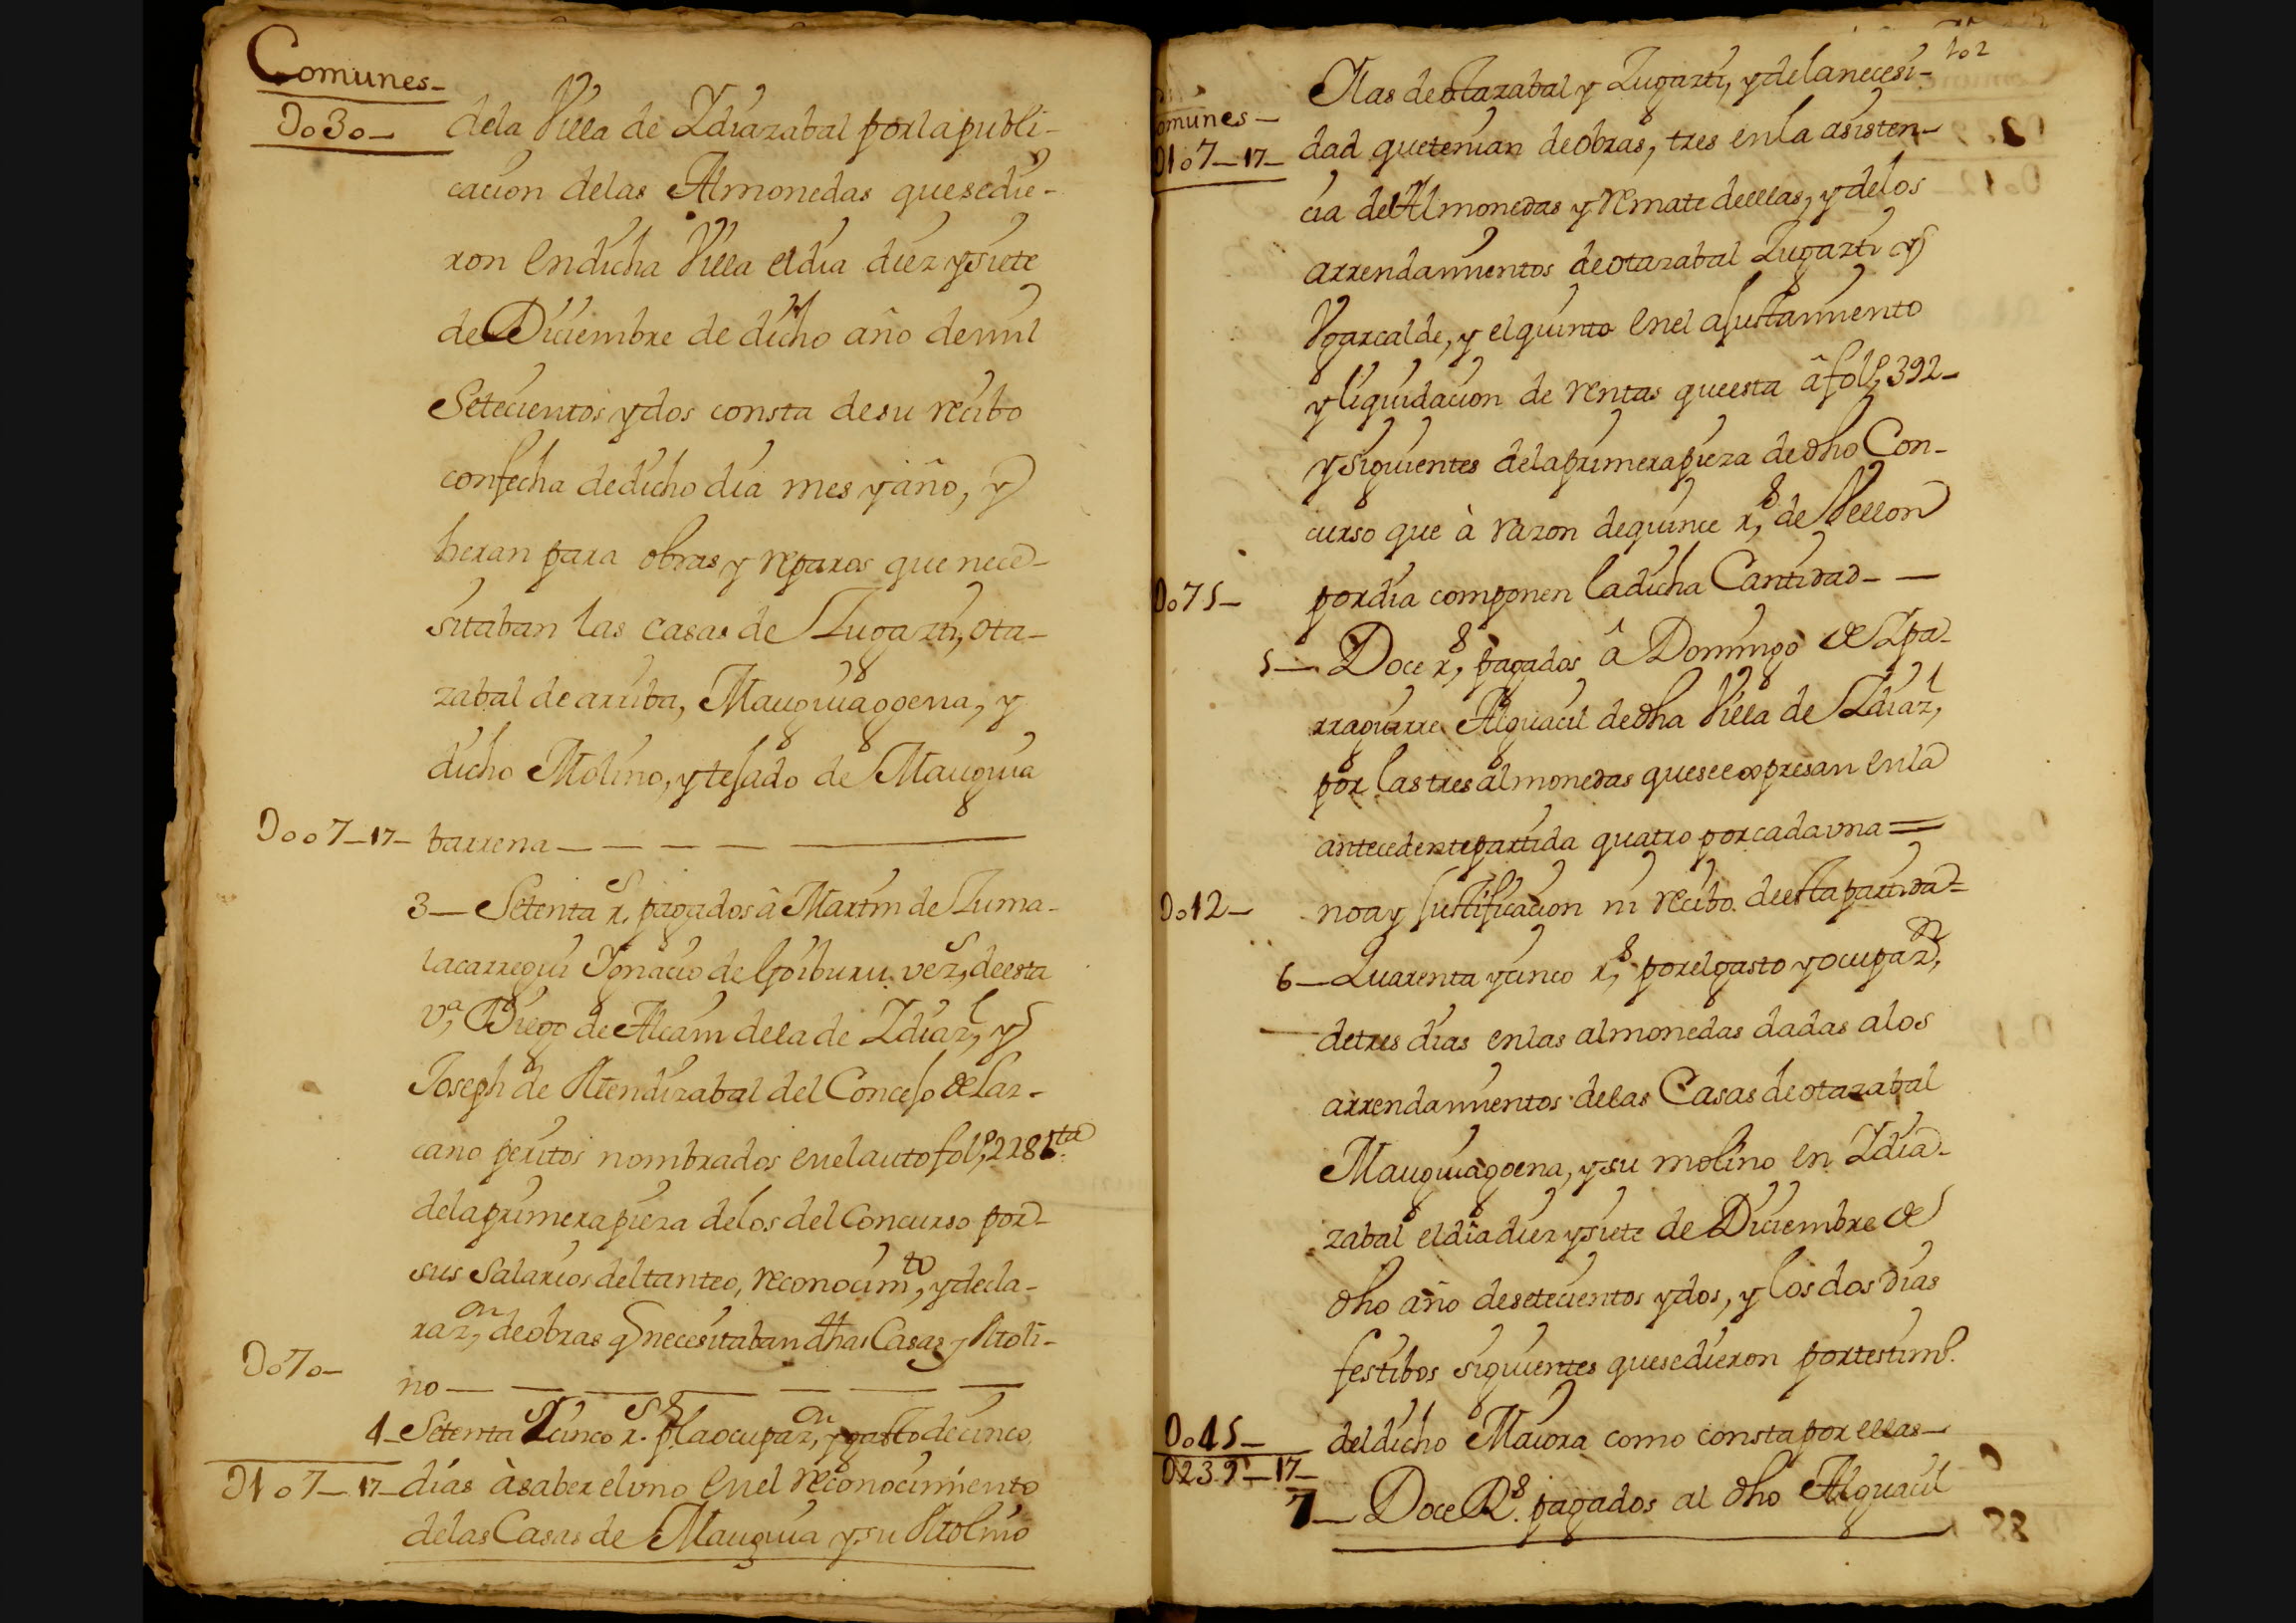 Comunes_
Do30_
dela Villa de Ydiazabal por la publi-
cacion delas Almonedas quesedie-
ron en dicha Villa el dia diez ysiete
de Diciembre de dicho año demil
Setecientos ydos consta desu recibo
confecha dedicho dia mes yaño, y
heran para obras y reparos que nece-
sitaban las casas de Lugazti, ota-
zabal de arriba, Mauguiagoena, y
dicho Molino, ytejado de Mauguia
Doo7_17_ barrena
3_ Setenta rs. pagados â Martin de Zuma-
lacarregui Ygnacio de Goiburu vezs, deesta
va, Diego de Alcain dela de Ydiazl, y
Joseph de Mendizabal del Concejo de Laz-
cano peritos nombrados enelauto folo, 228 bta
delaprimerapieza delos del Concurso por
sus Salarios deltanteo, reconocimto, ydecla-
razon, deobras q necesitaban dhas Casas y Moli-
Do70_ no
4_ Setenta y cinco rs. pr laocupazon, ygasto decinco
D107_17_ dias àsaber eluno enel reconocimiento
delas Casas de Mauguia ysu Molino
102
omunes_
D107_17_
Ylas deotazabal y Lugazti, ydelanecesi-
dad quetenian deobras, tres enla asisten-
cia delAlmonedas y remate deellas, ydelos
arrendamientos deotazabal Lugazti y
Ygarcalde, y elquinto enel ajustamiento
y liquidacion de rentas queesta â folo, 392_
ysiguientes delaprimerapieza dedho Con-
curso que à razon dequince rs, de Vellon
Do75_ pordia componen ladicha Cantidad_
5_ Doce rs, pagados â Domingo de Ypa-
rraguirre Alguacil dedha Villa de Ydiazl,
por lastres almonedas queseexpresan enla
antecedentepartida quatro porcadauna=
Do12_ noay justificacion ni recibo deestapartida=
6_ Quarenta ycinco rs, porelgasto yocupazon,
detres dias enlas almonedas dadas alos
arrendamientos delas Casas deotazabal
Mauguiagoena, ysu molino en Ydia-
zabal eldia diez ysiete de Diciembre de
dho año desetecientos ydos, y losdos dias
festibos siguientes quesedieron portestimo.
Do45_ deldicho Maiora como consta por ellas_
D239_17_
7_ Doce Rs. pagados al dho Alguacil